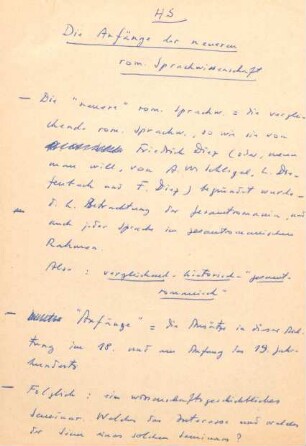 HS
Die Anfänge der neueren
rom. Sprachwissenschaft
— Die "neuere" rom. Sprachw. = die verglei-
chende rom. Sprachw., so wie sie von
Friedrich Diez (oder, wenn
man will, von A. W. Schlegel, L. Die-
fenbach und F. Diez) begründet wurde
d. h. Betrachtung der Gesamtromania, und
auch jeder Sprache im gesamtromanischen
Rahmen.
Also: vergleichend-historisch-"gesamt-
romanisch"
— "Anfänge" = die Ansätze in dieser Rich-
tung im 18. und am Anfang des 19. Jahr-
hunderts
— Folglich: ein wissenschaftsgeschichtliches
Seminar. Welches das Interesse und welches
der Sinn eines solchen Seminars?